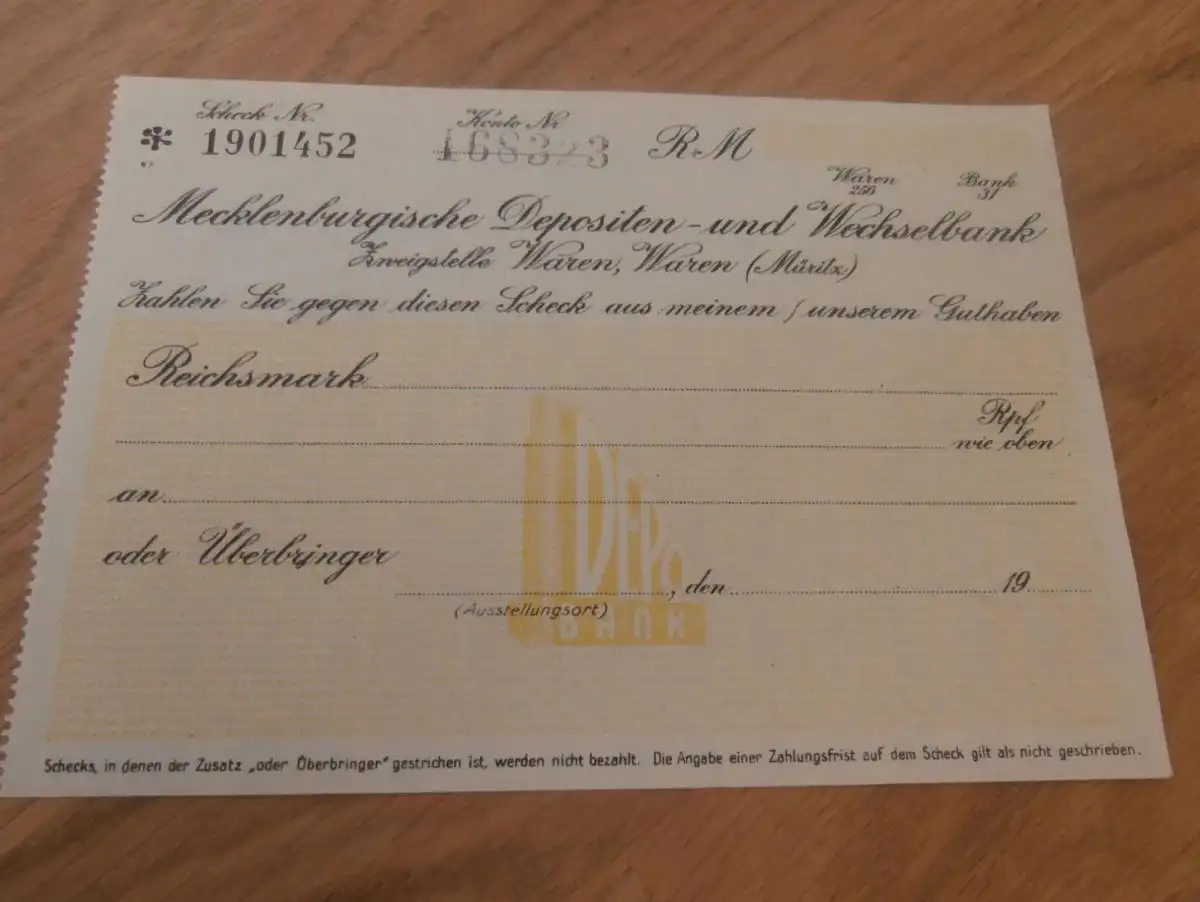 Scheck Nr.
Konto Nr
RM
1901452
168323
Waren
256
Bank
31
Mecklenburgische Depositen- und Wechselbank
Zweigstelle Waren, Waren (Müritz)
Zahlen Sie gegen diesen Scheck aus meinem / unserem Guthaben
Reichsmark
Rpf
wie oben
an
oder Überbringer
, den 19
(Ausstellungsort)
DEPO
BANK
Schecks, in denen der Zusatz „oder Überbringer“ gestrichen ist, werden nicht bezahlt. Die Angabe einer Zahlungsfrist auf dem Scheck gilt als nicht geschrieben.